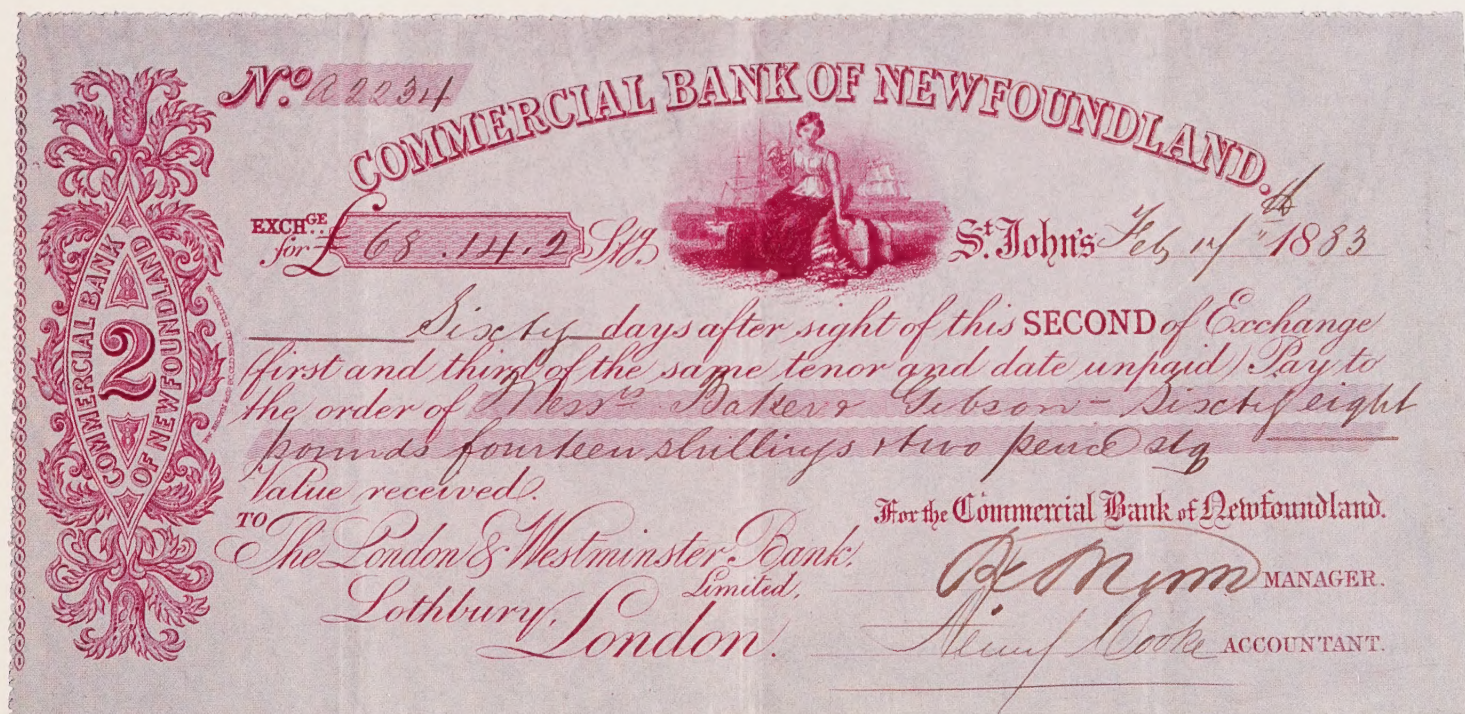 No. a 2234
COMMERCIAL BANK OF NEWFOUNDLAND.
EXCHGE for £ 68.14.2 Stg. St. John's Feb 17th 1883
Sixty days after sight of this SECOND of Exchange
(first and third of the same tenor and date unpaid) Pay to
the order of Messrs Baker & Gibson - Sixty eight
pounds fourteen shillings & two pence stg
Value received.
TO
The London & Westminster Bank,
Limited,
Lothbury,
London.
For the Commercial Bank of Newfoundland.
MANAGER.
Henry Cooke ACCOUNTANT.
COMMERCIAL BANK
2
OF NEWFOUNDLAND